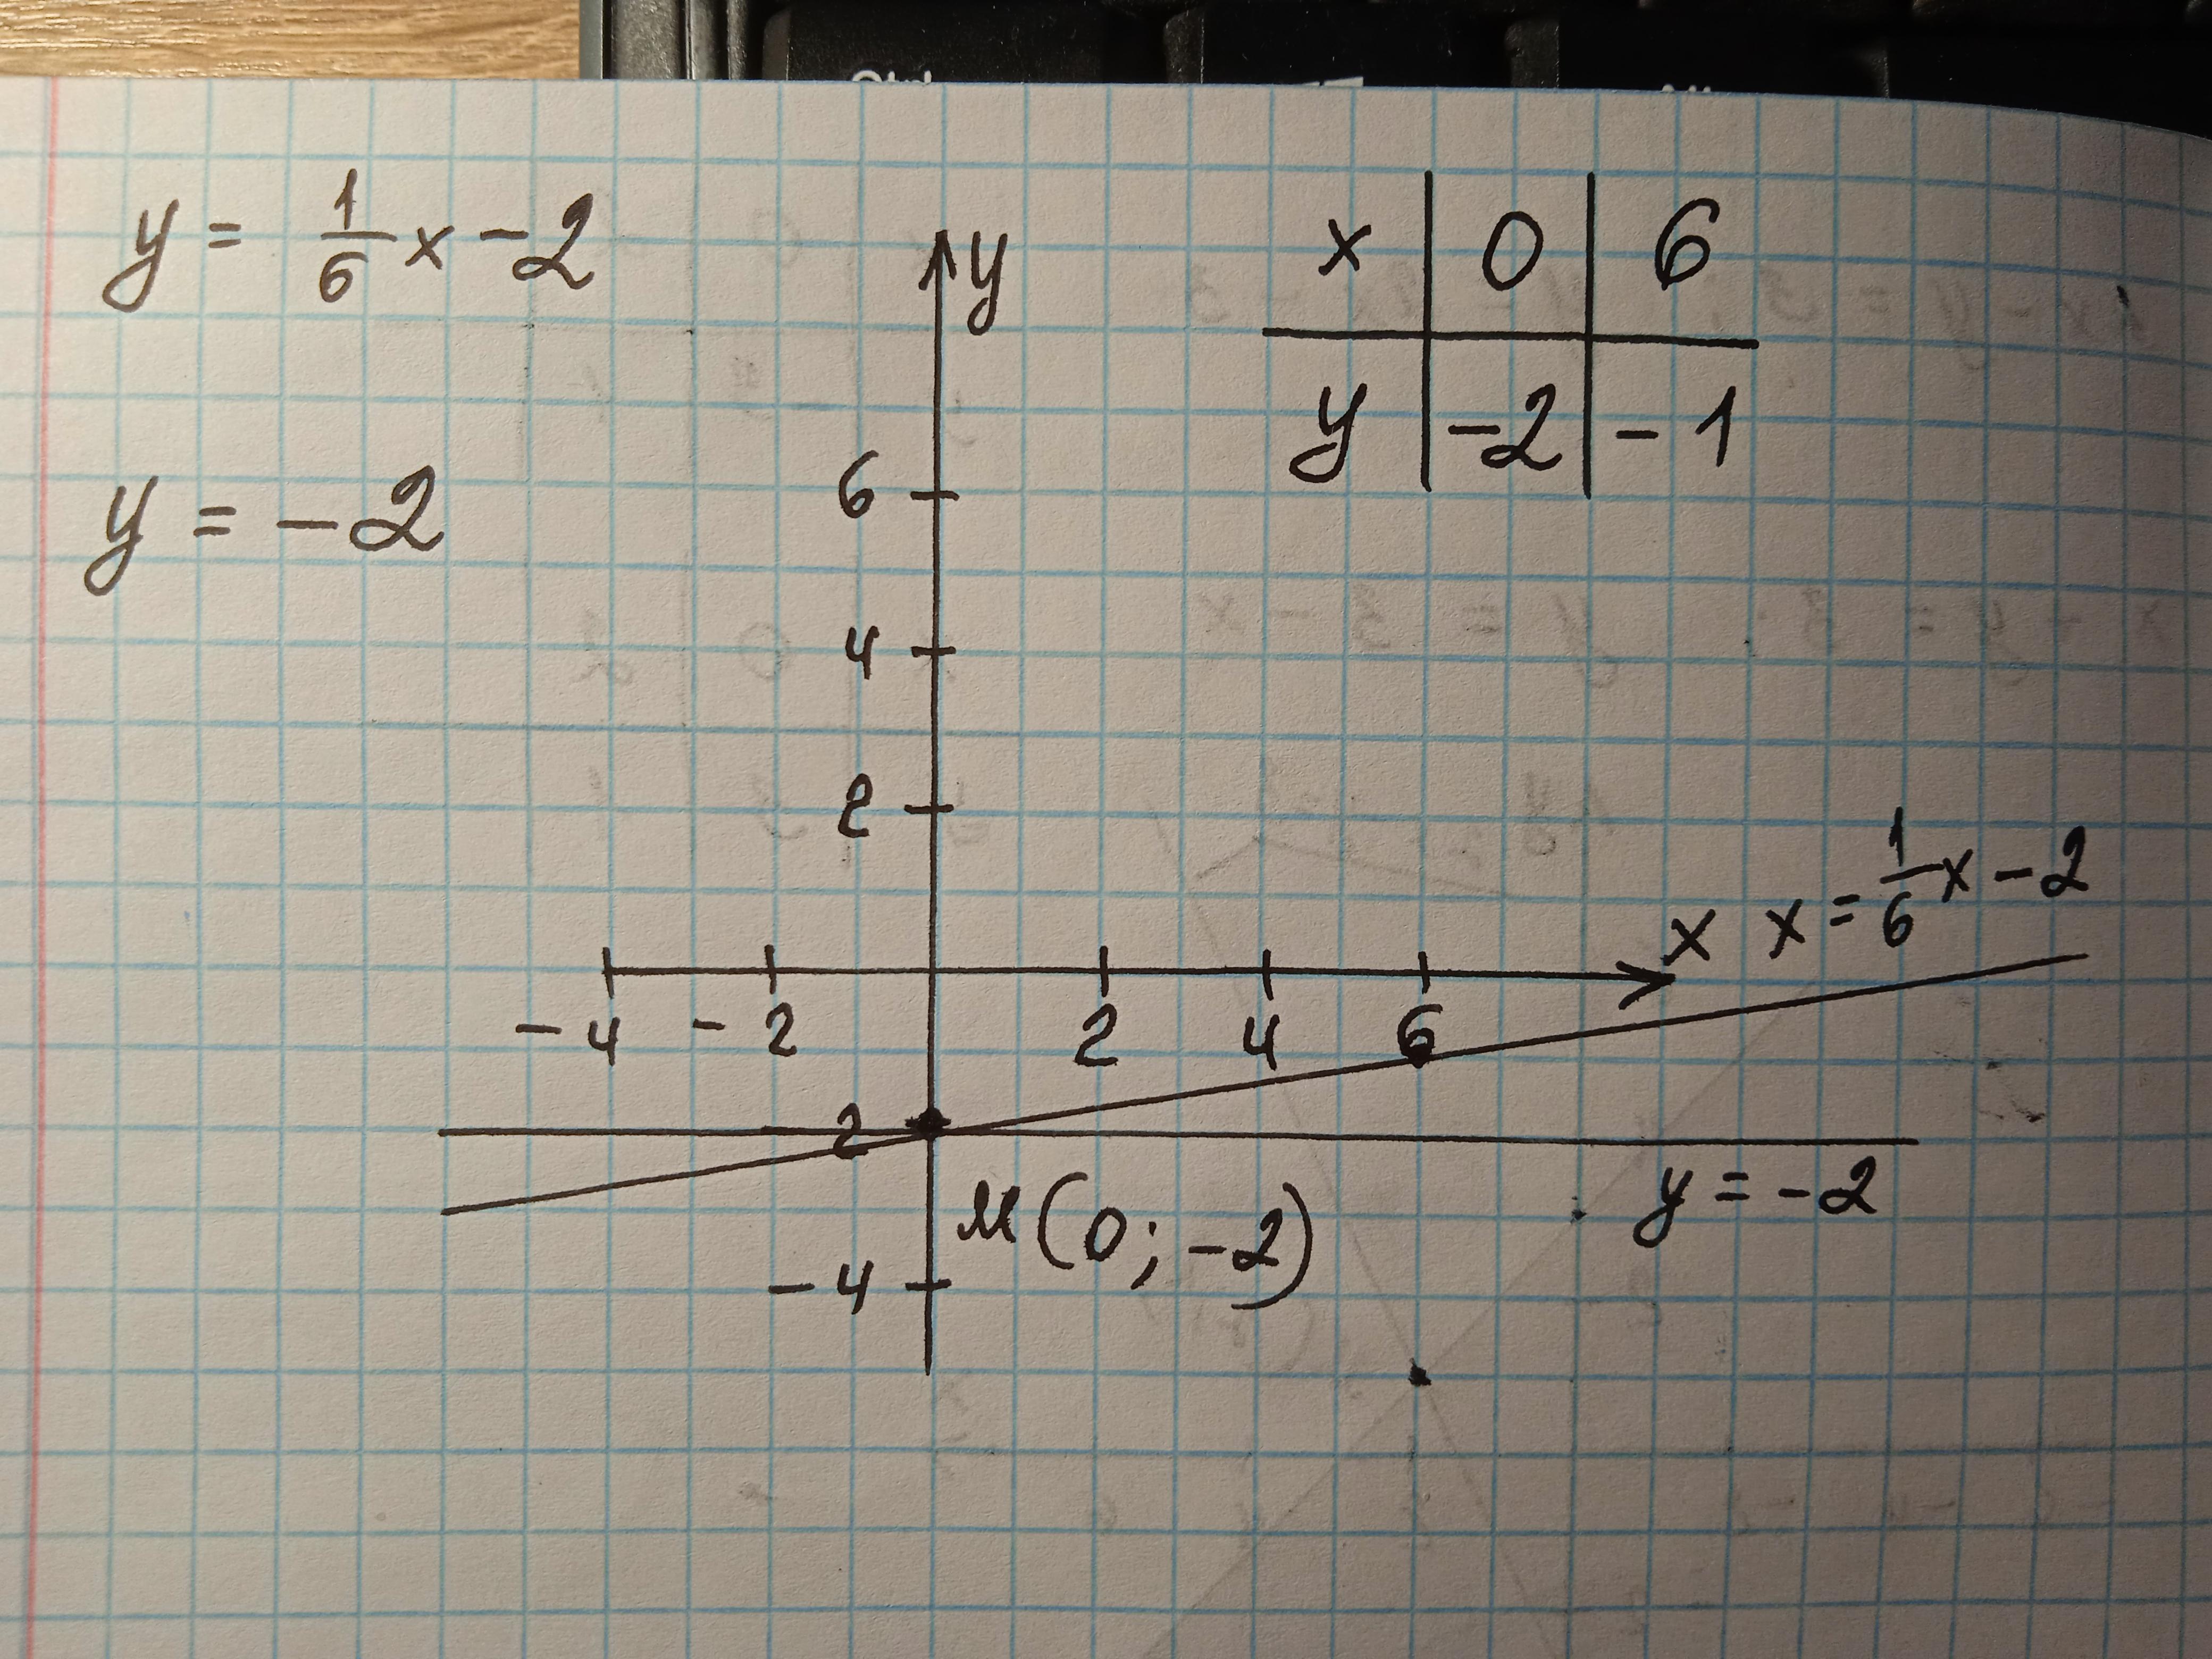 y = 1/6 x - 2
y = -2
x | 0 | 6
y | -2 | -1
y
6
4
2
x x = 1/6 x - 2
-4 -2 2 4 6
2
y = -2
M(0; -2)
-4